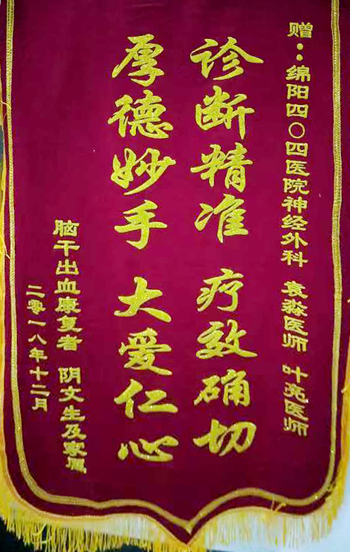 赠：绵阳四〇四医院神经外科 袁淼医师 叶亮医师
诊断精准 疗效确切
厚德妙手 大爱仁心
脑干出血康复者 阴文生及家属
二零一八年十二月